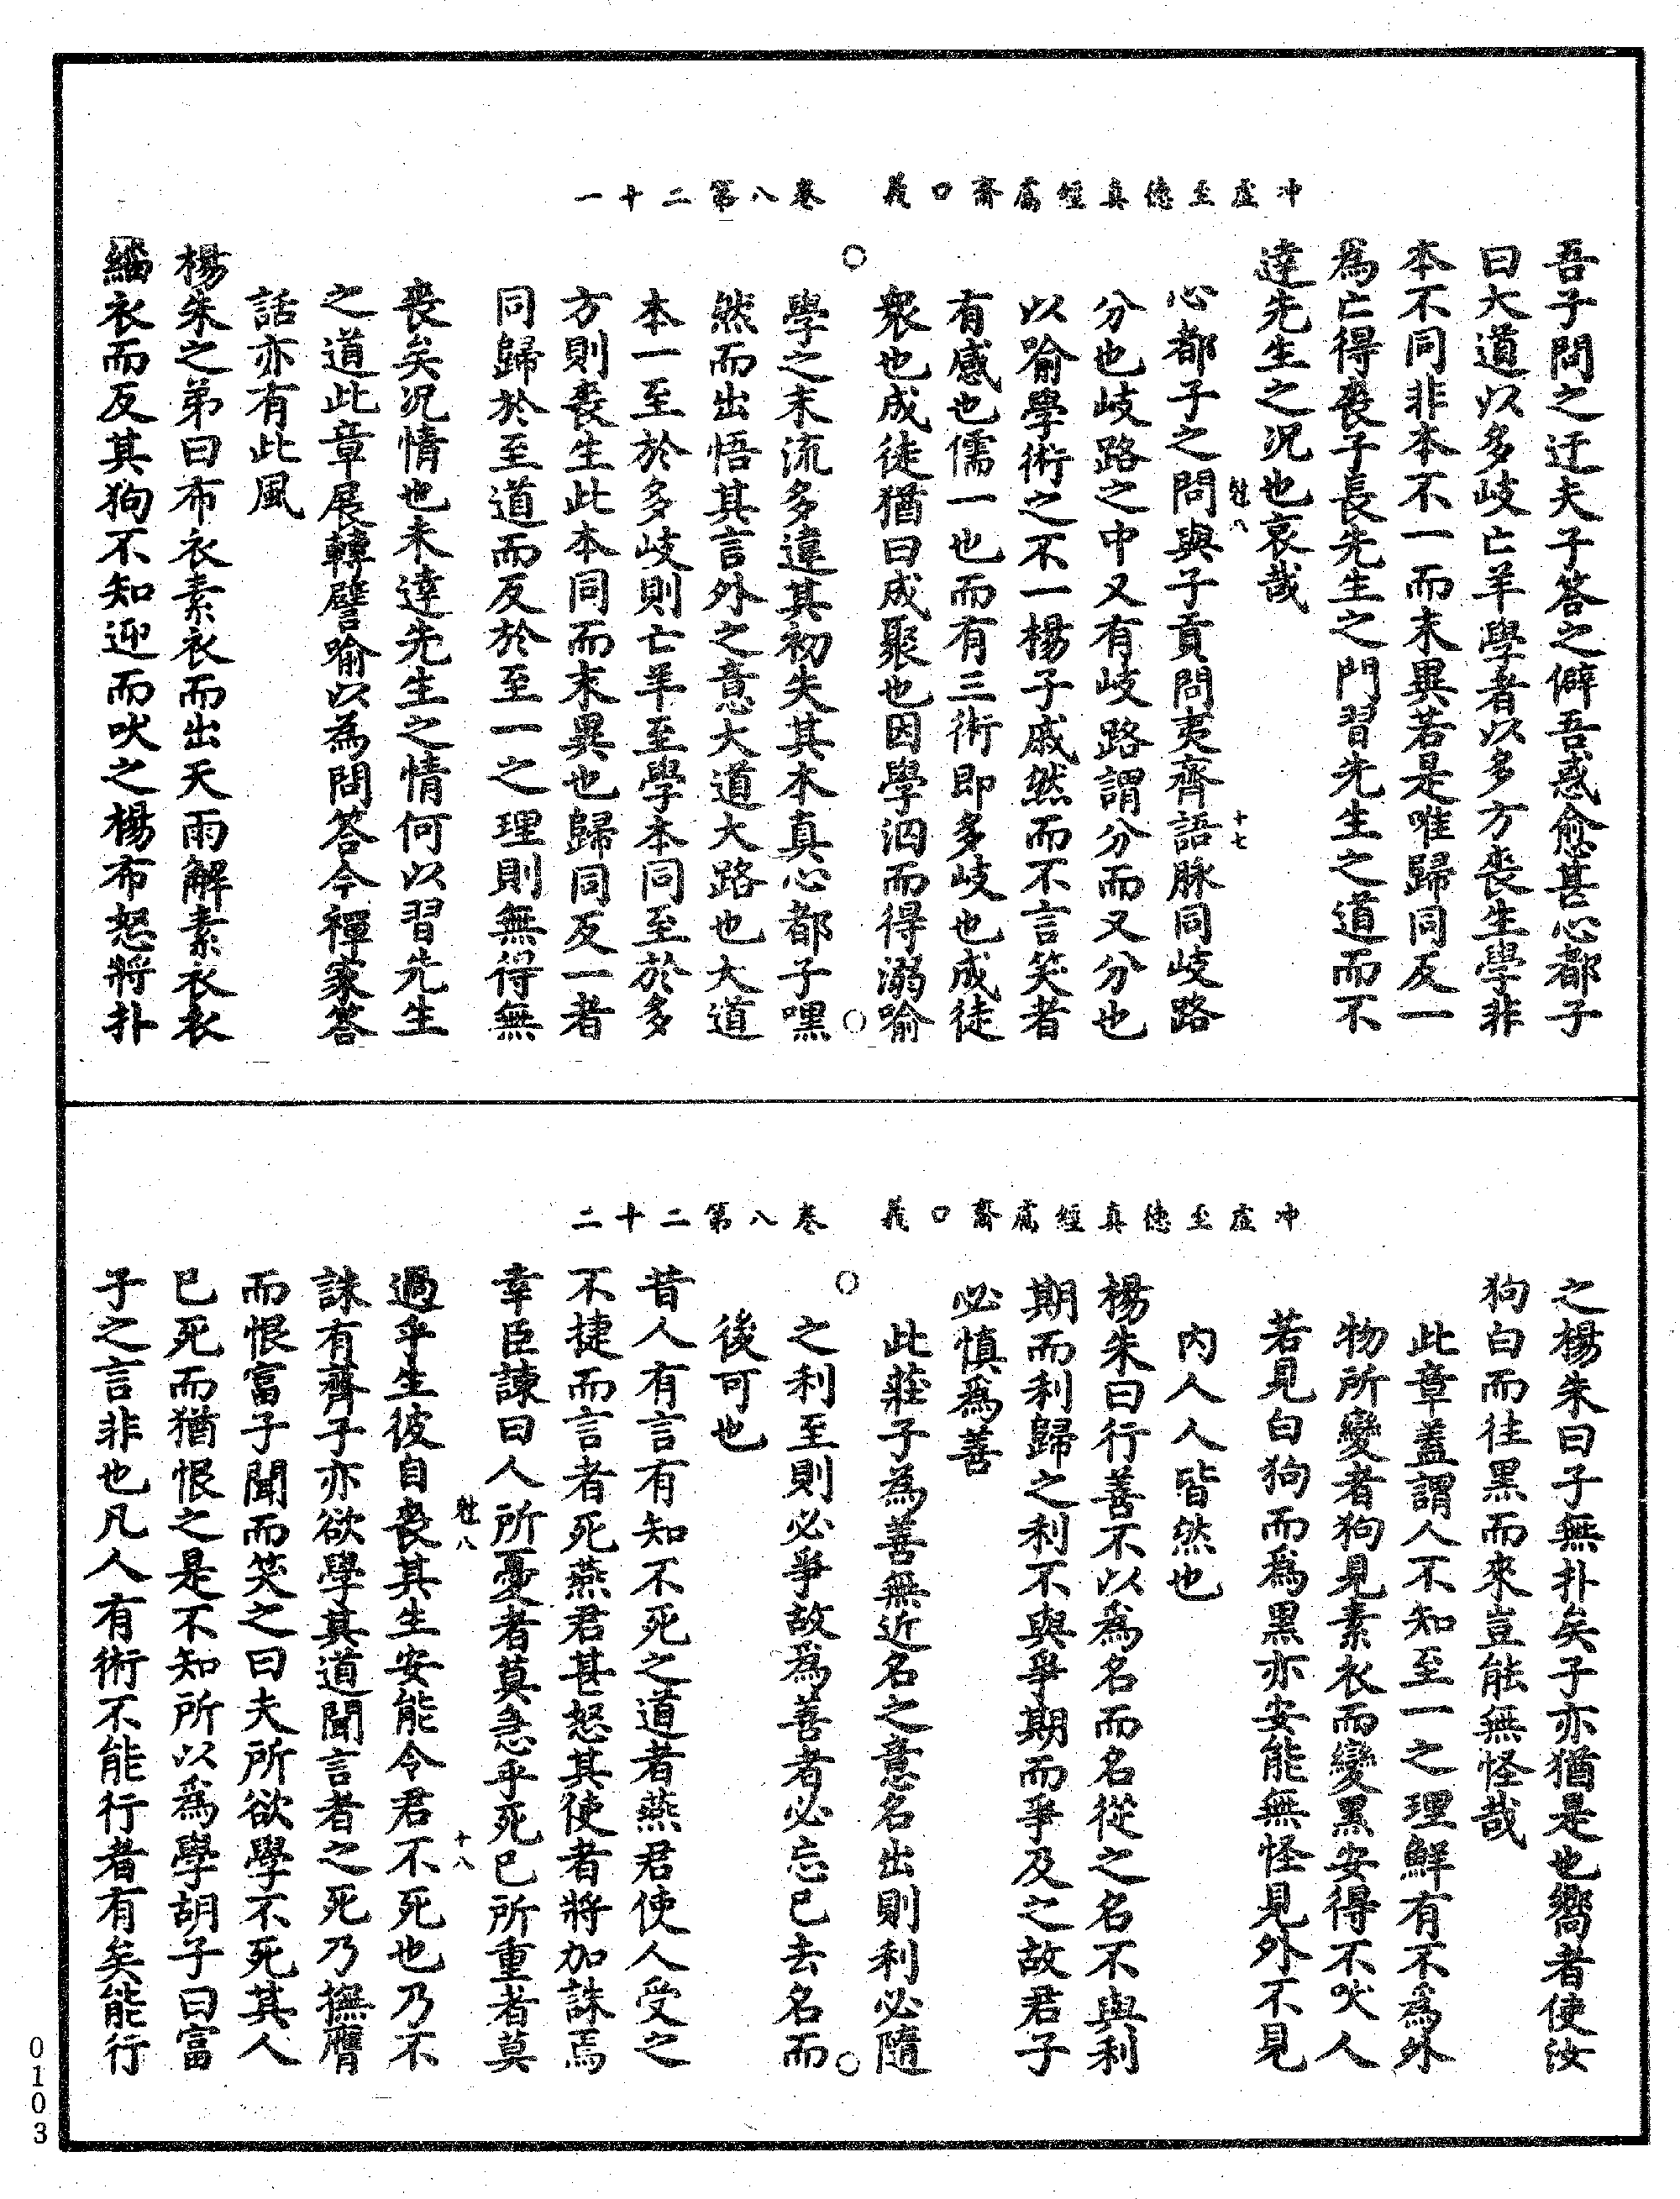 冲虛至德真經鬳齋口義　卷八第二十一
吾子問之迂夫子答之僻吾惑愈甚心都子
曰大道以多歧亡羊學者以多方喪生學非
本不同非本不一而末異若是唯歸同反一
為亡得喪子長先生之門習先生之道而不
達先生之况也哀哉
尅八　十七
心都子之問與子貢問夷齊語脉同歧路
分也歧路之中又有歧路謂分而又分也
以喻學術之不一楊子戚然而不言笑者
有感也儒一也而有三術即多歧也成徒
衆也成徒猶曰成聚也因學泅而得溺喻
學之末流多違其初失其本真心都子嘿
然而出悟其言外之意大道大路也大道
本一至於多歧則亡羊至學本同至於多
方則喪生此本同而末異也歸同反一者
同歸於至道而反於至一之理則無得無
喪矣况情也未達先生之情何以習先生
之道此章展轉譬喻以為問答今禪家答
話亦有此風
楊朱之弟曰布衣素衣而出天雨解素衣衣
緇衣而反其狗不知迎而吠之楊布怒將扑
冲虛至德真經鬳齋口義　卷八第二十二
之楊朱曰子無扑矣子亦猶是也嚮者使汝
狗白而往黑而來豈能無怪哉
此章蓋謂人不知至一之理鮮有不為外
物所變者狗見素衣而變黑安得不吠人
若見白狗而為黑亦安能無怪見外不見
内人人皆然也
楊朱曰行善不以為名而名從之名不與利
期而利歸之利不與爭期而爭及之故君子
必慎為善
此莊子為善無近名之意名出則利必隨
之利至則必爭故為善者必忘己去名而
後可也
昔人有言有知不死之道者燕君使人受之
不捷而言者死燕君甚怒其使者將加誅焉
幸臣諫曰人所憂者莫急乎死己所重者莫
尅八　十八
過乎生彼自喪其生安能令君不死也乃不
誅有齊子亦欲學其道聞言者之死乃撫膺
而恨富子聞而笑之曰夫所欲學不死其人
已死而猶恨之是不知所以為學胡子曰富
子之言非也凡人有術不能行者有矣能行
0103